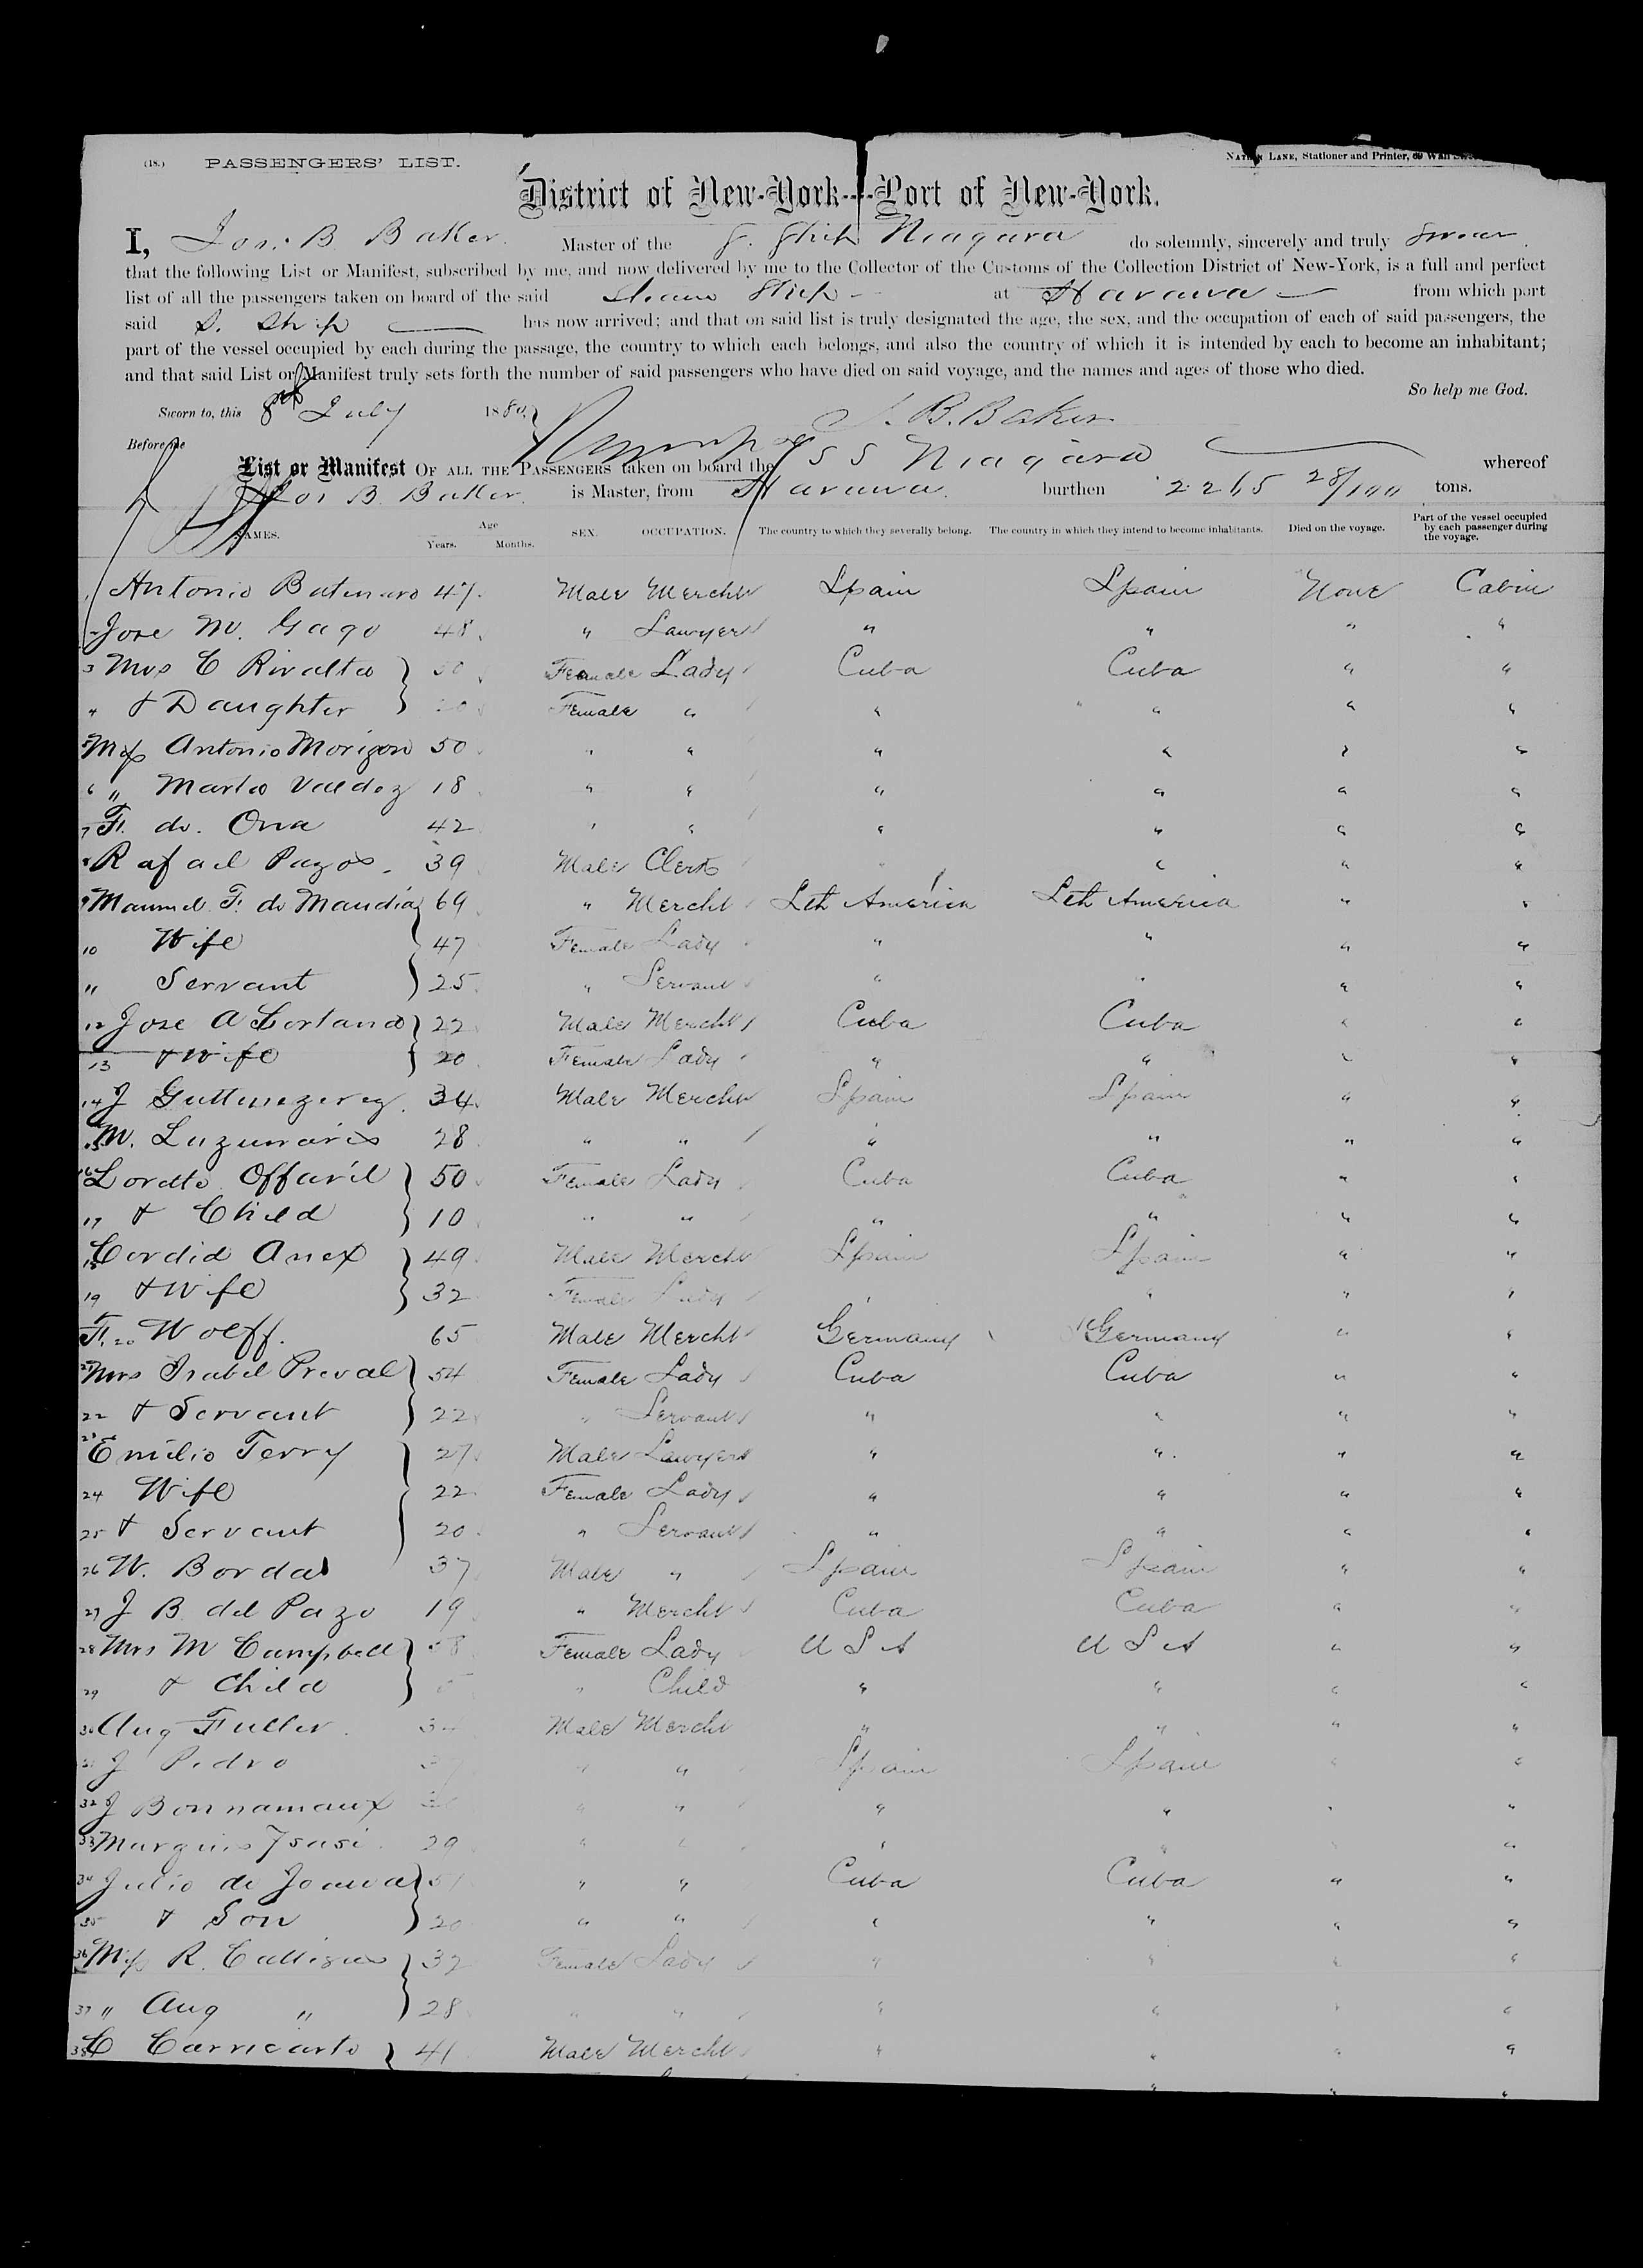 (18.) PASSENGERS' LIST.
NATHAN LANE, Stationer and Printer, 69 Wall
District of New-York--Port of New-York.
I, Jos. B. Baker. Master of the S. Ship Niagara do solemnly, sincerely and truly swear
that the following List or Manifest, subscribed by me, and now delivered by me to the Collector of the Customs of the Collection District of New-York, is a full and perfect
list of all the passengers taken on board of the said Steam Ship at Havana from which port
said S. Ship has now arrived; and that on said list is truly designated the age, the sex, and the occupation of each of said passengers, the
part of the vessel occupied by each during the passage, the country to which each belongs, and also the country of which it is intended by each to become an inhabitant;
and that said List or Manifest truly sets forth the number of said passengers who have died on said voyage, and the names and ages of those who died.
So help me God.
Sworn to, this 8th July 1880. J. B. Baker
Before me
List or Manifest OF ALL THE PASSENGERS taken on board the SS Niagara whereof
Jos B. Baker is Master, from Havana burthen 2265 28/100 tons.
NAMES. Age Years. Months. SEX. OCCUPATION. The country to which they severally belong. The country in which they intend to become inhabitants. Died on the voyage. Part of the vessel occupied by each passenger during the voyage.
1 Antonio 47 Male Mercht Spain Spain None Cabin
2 Jose M. Gago 48 " Lawyer " " " "
3 Mrs C Rivalta Female Lady Cuba Cuba " "
4 & Daughter Female " " " " "
5 Miss Antonio Morizon 50 " " " " " "
6 " Marta Valdez 18 " " " " " "
7 F. de. Ona 42 " " " " " "
8 Rafael Pazos. 39 Male Clerk " " " "
9 Manuel F. de Mandia 69 " Mercht Sth America Sth America " "
10 Wife 47 Female Lady " " " "
" Servant 25 " Servant " " " "
12 Jose A Cortana 22 Male Mercht Cuba Cuba " "
13 & Wife 20 Female Lady " " " "
14 J 34 Male Mercht Spain Spain " "
15 M. 28 " " " " " "
16 Loretto Offaril 50 Female Lady Cuba Cuba " "
17 & Child 10 " " " " " "
18 Cordid Anex 49 Male Mercht Spain Spain " "
19 & Wife 32 Female Lady " " " "
F. 20 Wolff. 65 Male Mercht Germany Germany " "
21 Mrs Isabel Preval 54 Female Lady Cuba Cuba " "
22 & Servant 22 " Servant " " " "
23 Emilio Terry 27 Male Lawyer " " " "
24 Wife 22 Female Lady " " " "
25 & Servant 20 " Servant " " " "
26 W. Borda 37 Male " Spain Spain " "
27 J B. del Pazo 19 " Mercht Cuba Cuba " "
28 Mrs M Campbell Female Lady U S A U S A " "
29 & Child " Child " " " "
30 Aug Fuller. 34 Male Mercht " " " "
J Pedro " " Spain Spain " "
32 J Bonnamaux " " " " " "
33 Marquis Isasi. 29 " " " " " "
34 Julio de Joana 51 " " Cuba Cuba " "
35 & Son 20 " " " " " "
36 Miss R. 32 Female Lady " " " "
37 " Aug " 28 " " " " " "
38 C Carricarto 41 Male Mercht " " " "